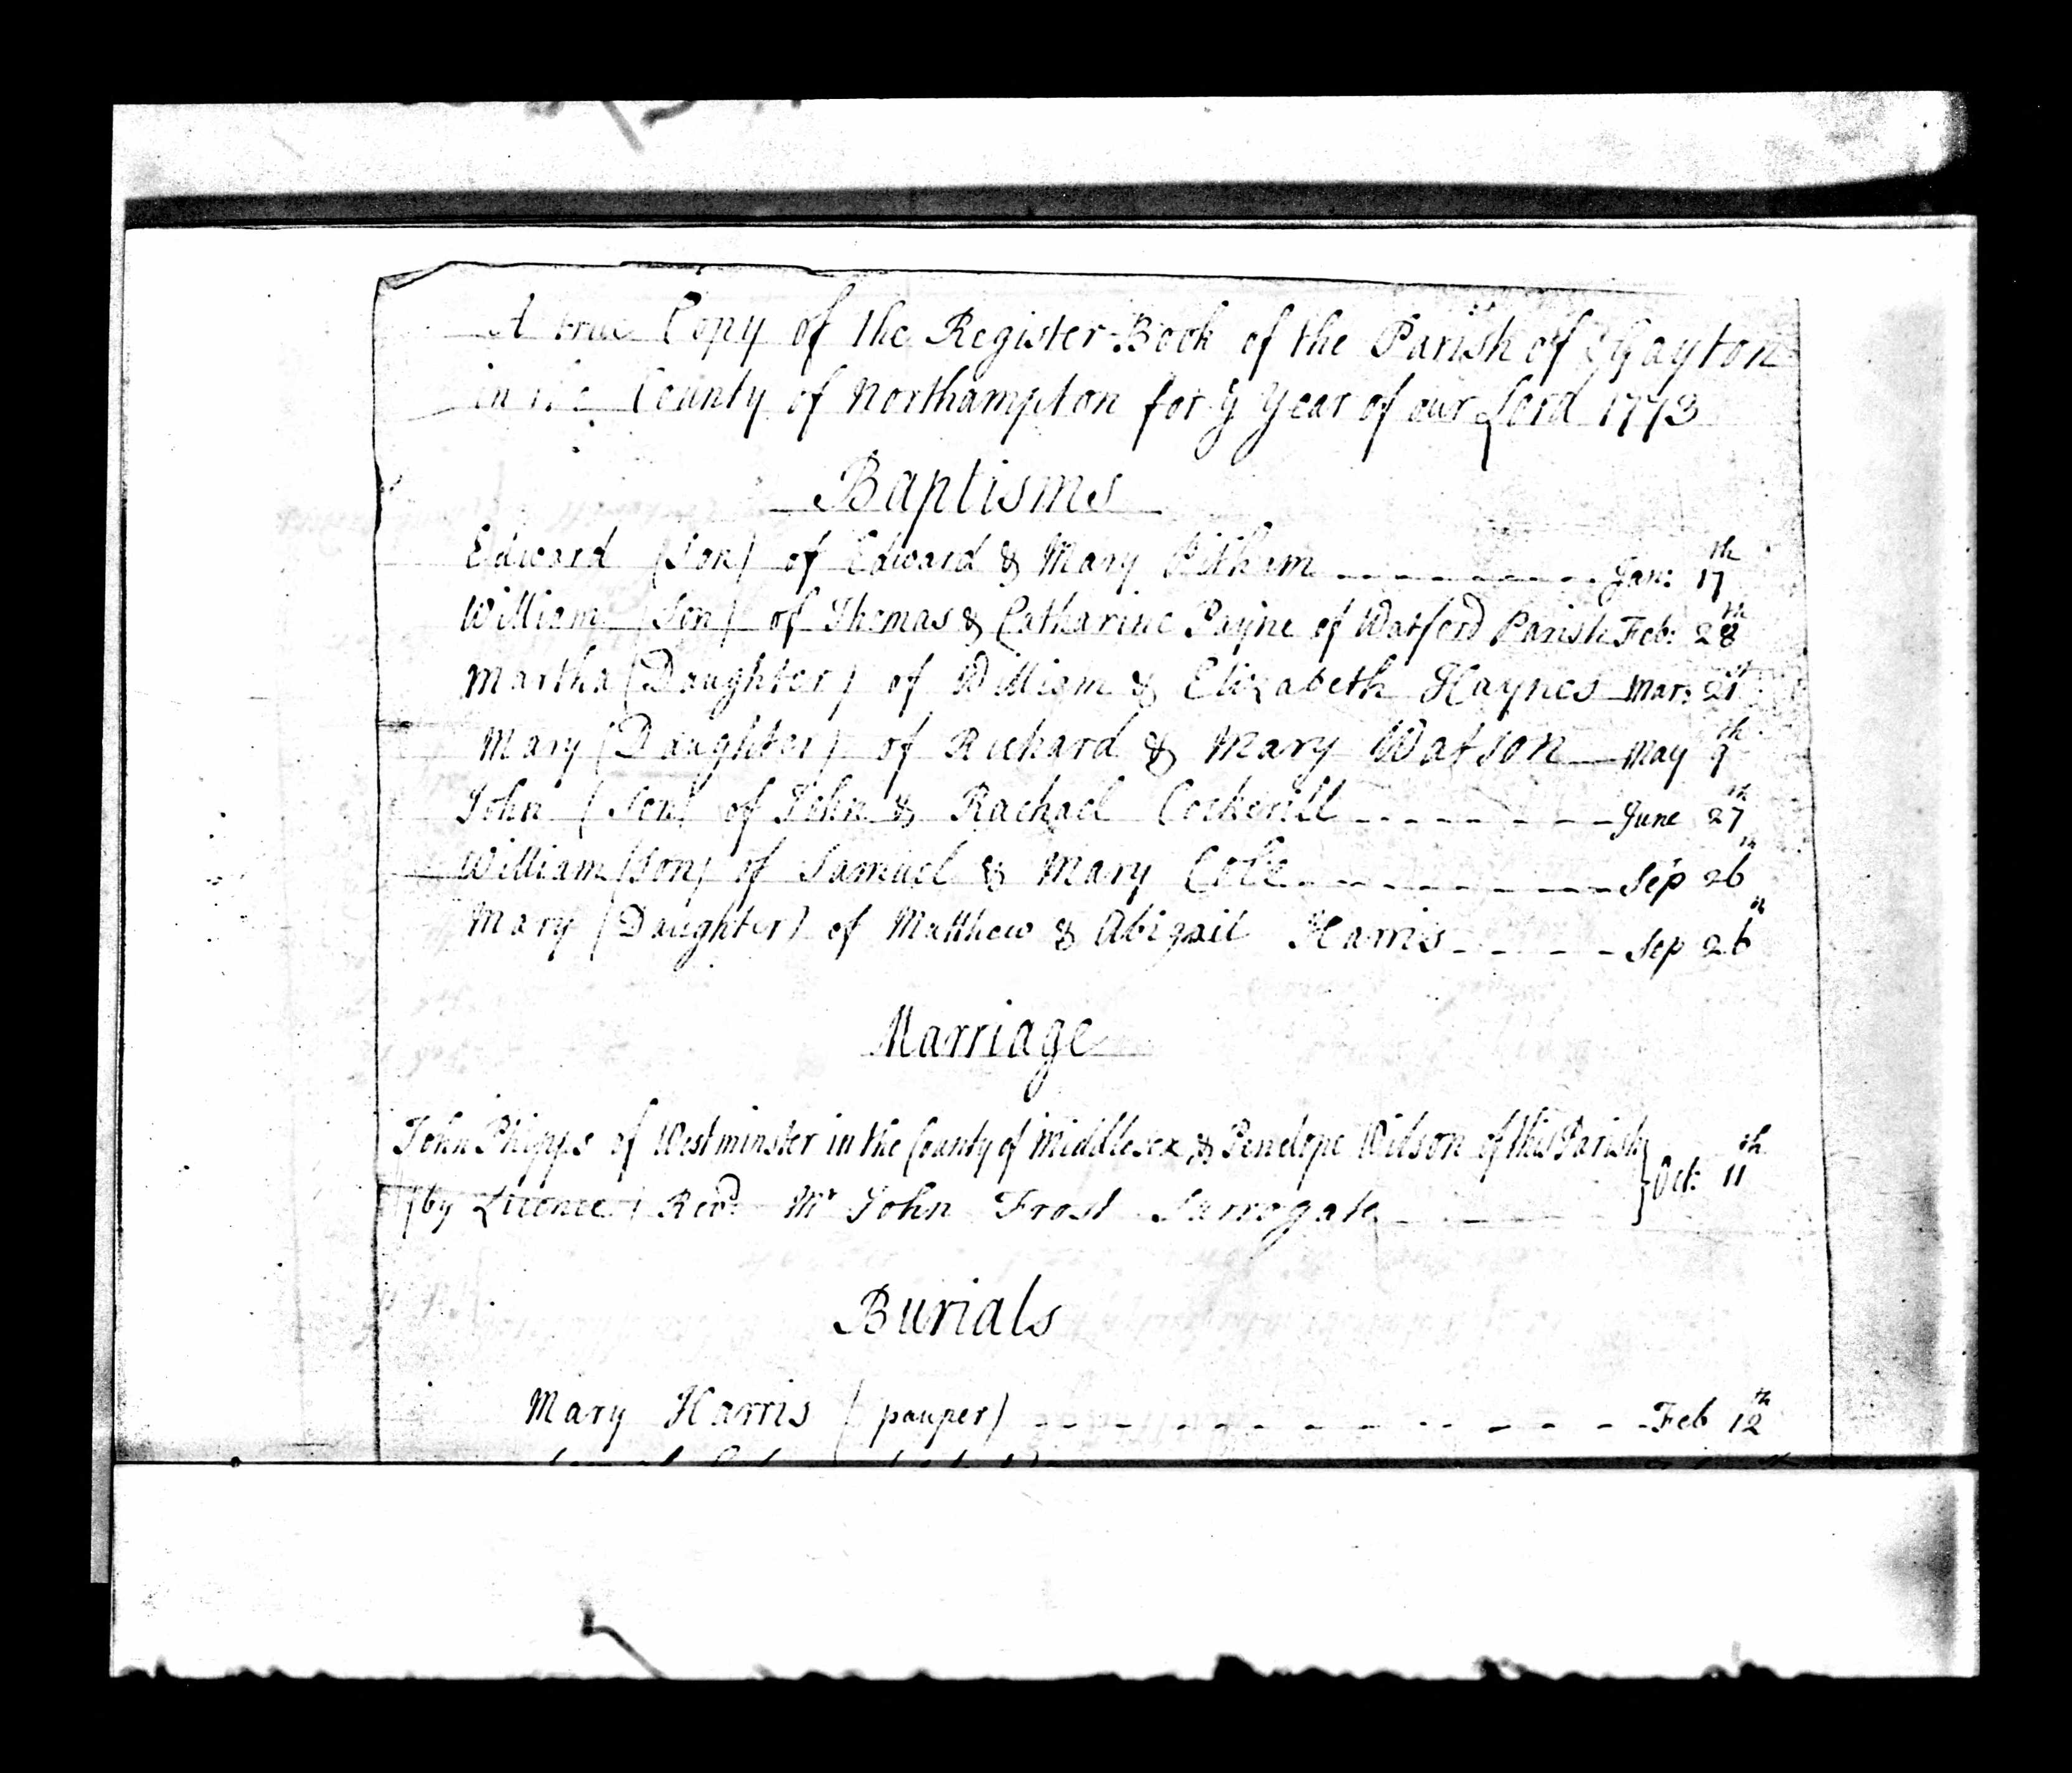 A true Copy of the Register-Book of the Parish of Gayton
in the County of Northampton for ye Year of our Lord 1773
Baptisms
Edward (Son) of Edward & Mary Jan: 17th
William (Son) of Thomas & Catharine Payne of Watford Parish Feb: 28th
Martha (Daughter) of William & Elizabeth Haynes Mar: 21st
Mary (Daughter) of Richard & Mary Watson May 9th
John (Son) of John & Rachael Cockerill June 27th
William (Son) of Samuel & Mary Cole Sep 26th
Mary (Daughter) of Matthew & Abigail Harris Sep 26th
Marriage
John Phipps of Westminster in the County of Middlesex, & Penelope Wilson of this Parish } Oct: 11th
(by Licence) Revd. Mr John Frost Surrogate
Burials
Mary Harris (pauper) Feb 12th